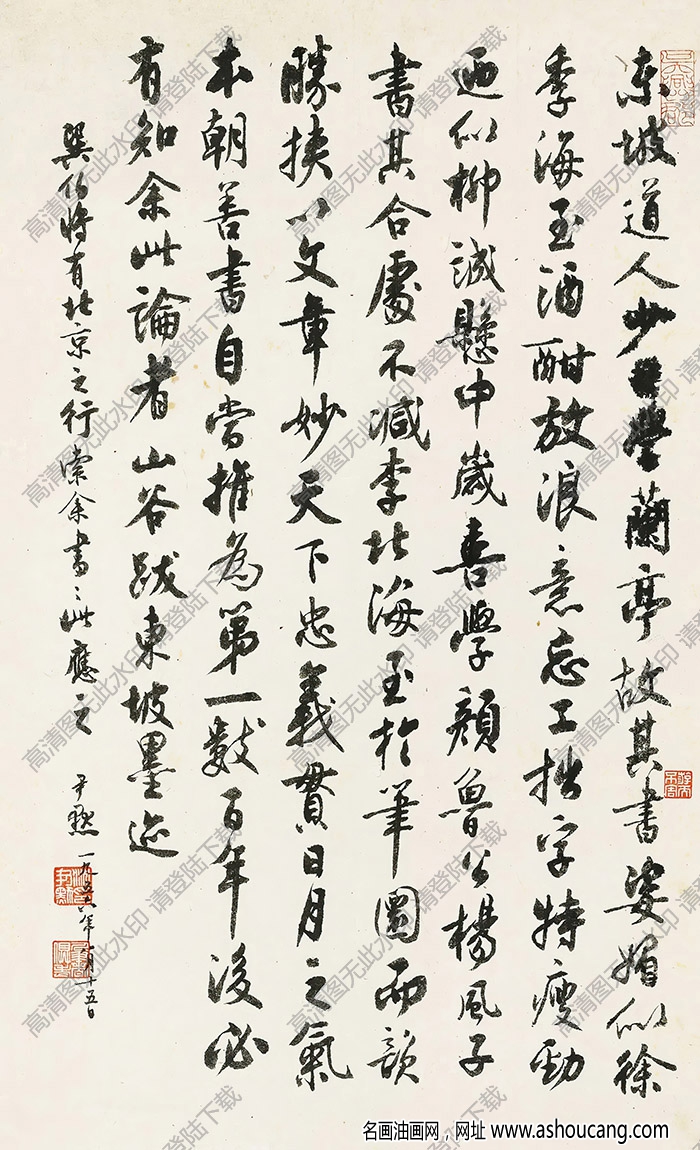 東坡道人少日學蘭亭故其書姿媚似徐
季海至酒酣放浪意忘工拙字特瘦勁
迺似柳誠懸中歲喜學顏魯公楊風子
書其合處不減李北海至於筆圜而韻
勝挾以文章妙天下忠義貫日月之氣
本朝善書自當推為第一數百年後必
有知余此論者山谷跋東坡墨迹
巽伯將有北京之行索余書〻此應之 尹默 一九五六年月十五日
高清图无此水印 请登陆下载
名画油画网，网址 www.ashoucang.com